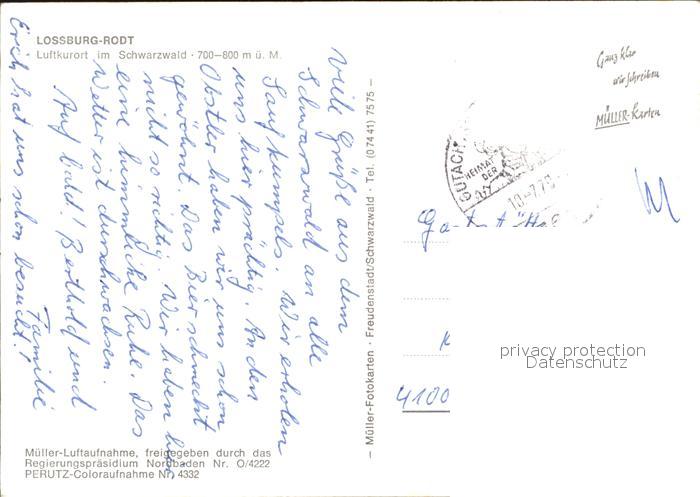 LOSSBURG-RODT
Luftkurort im Schwarzwald · 700—800 m ü. M.
Viele Grüße aus dem
Schwarzwald an alle
Saufkumpels. Wir erholen
uns hier prächtig. An den
Obstler haben wir uns schon
gewöhnt. Das Bier schmeckt
nicht so richtig. Wir haben hier
eine himmliche Ruhe. Das
Wetter ist durchwachsen.
Auf bald! Berthold und
Familie
Erich hat uns schon besucht!
Müller-Luftaufnahme, freigegeben durch das
Regierungspräsidium Nordbaden Nr. O/4222
PERUTZ-Coloraufnahme Nr. 4332
— Müller-Fotokarten · Freudenstadt/Schwarzwald · Tel. (07441) 7575 —
Ganz klar
wir schreiben
MÜLLER-Karten
GUTACH
HEIMAT
DER
4100
privacy protection
Datenschutz